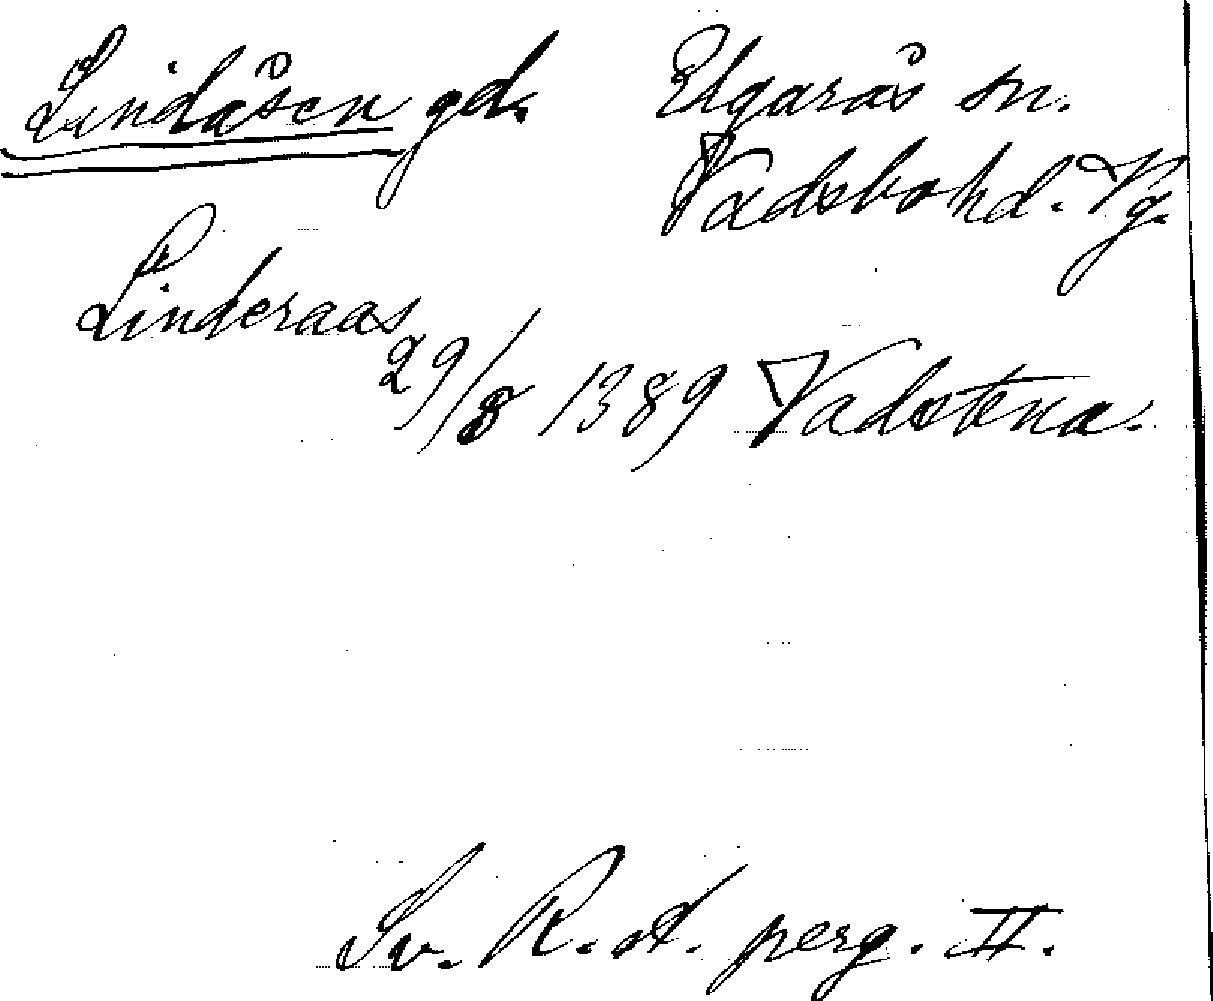 Lindåsen gd. Elgarås sn.
Vadsbo hd. Vg.
Linderaas
29/8 1389 Vadstena.
Sv. R. A. perg. II.